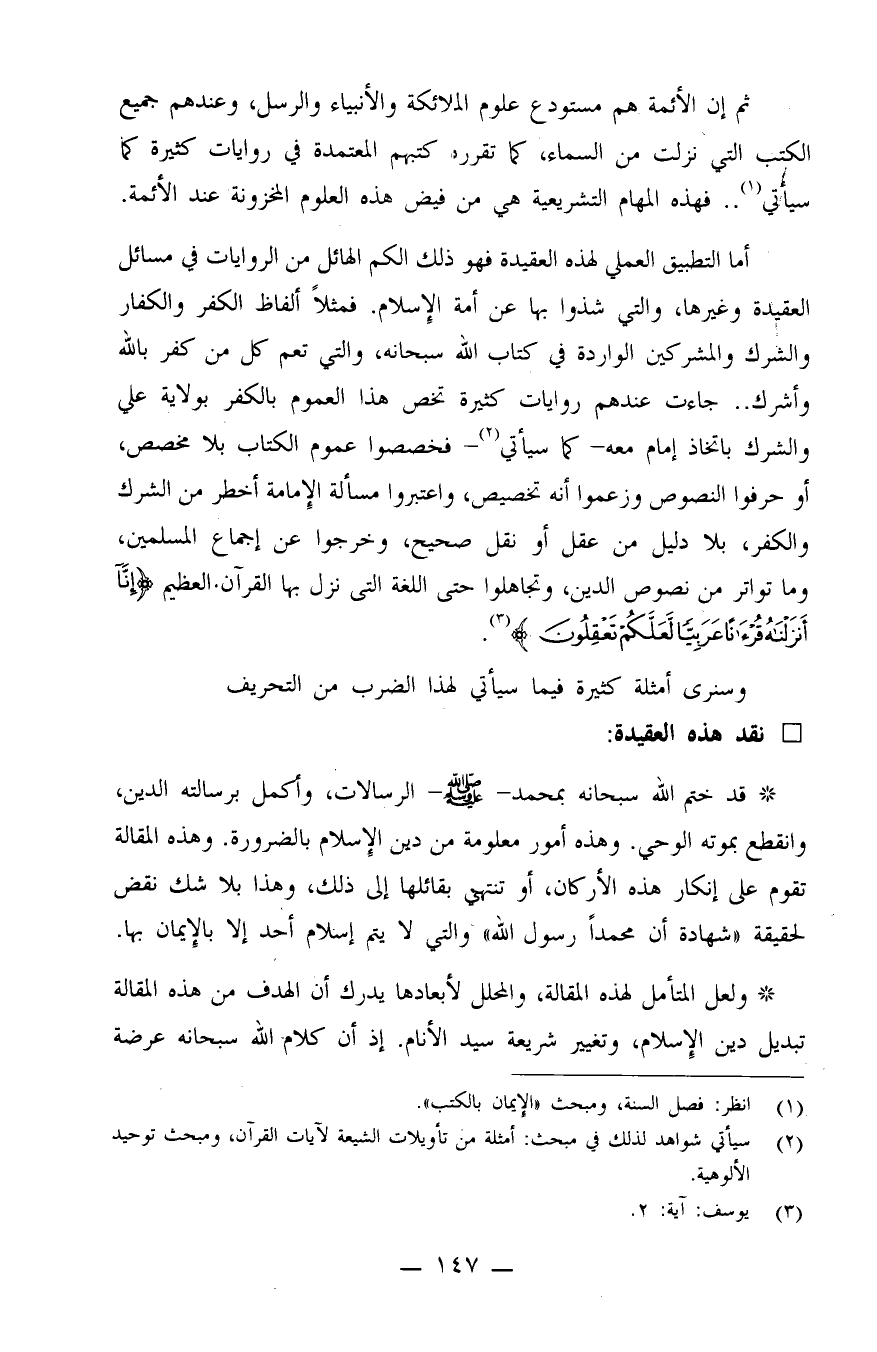 ثم إن الأئمة هم مستودع علوم الملائكة والأنبياء والرسل، وعندهم جميع
الكتب التي نزلت من السماء، كما تقرره كتبهم المعتمدة في روايات كثيرة كما
سيأتي(١).. فهذه المهام التشريعية هي من فيض هذه العلوم المخزونة عند الأئمة.
أما التطبيق العملي لهذه العقيدة فهو ذلك الكم الهائل من الروايات في مسائل
العقيدة وغيرها، والتي شذوا بها عن أمة الإسلام. فمثلاً ألفاظ الكفر والكفار
والشرك والمشركين الواردة في كتاب الله سبحانه، والتي تعم كل من كفر بالله
وأشرك.. جاءت عندهم روايات كثيرة تخص هذا العموم بالكفر بولاية علي
والشرك باتخاذ إمام معه- كما سيأتي(٢)- فخصصوا عموم الكتاب بلا مخصص،
أو حرفوا النصوص وزعموا أنه تخصيص، واعتبروا مسألة الإمامة أخطر من الشرك
والكفر، بلا دليل من عقل أو نقل صحيح، وخرجوا عن إجماع المسلمين،
وما تواتر من نصوص الدين، وتجاهلوا حتى اللغة التى نزل بها القرآن العظيم ﴿إِنَّآ
أَنزَلْنَٰهُ قُرْءَٰنًا عَرَبِيًّا لَّعَلَّكُمْ تَعْقِلُونَ﴾(٣).
وسنرى أمثلة كثيرة فيما سيأتي لهذا الضرب من التحريف
□ نقد هذه العقيدة:
* قد ختم الله سبحانه بمحمد- ﷺ- الرسالات، وأكمل برسالته الدين،
وانقطع بموته الوحي. وهذه أمور معلومة من دين الإسلام بالضرورة. وهذه المقالة
تقوم على إنكار هذه الأركان، أو تنتهي بقائلها إلى ذلك، وهذا بلا شك نقض
لحقيقة «شهادة أن محمداً رسول الله» والتي لا يتم إسلام أحد إلا بالإيمان بها.
* ولعل المتأمل لهذه المقالة، والمحلل لأبعادها يدرك أن الهدف من هذه المقالة
تبديل دين الإسلام، وتغيير شريعة سيد الأنام. إذ أن كلام الله سبحانه عرضة
(١) انظر: فصل السنة، ومبحث «الإيمان بالكتب».
(٢) سيأتي شواهد لذلك في مبحث: أمثلة من تأويلات الشيعة لآيات القرآن، ومبحث توحيد
الألوهية.
(٣) يوسف: آية: ٢.
— ١٤٧ —